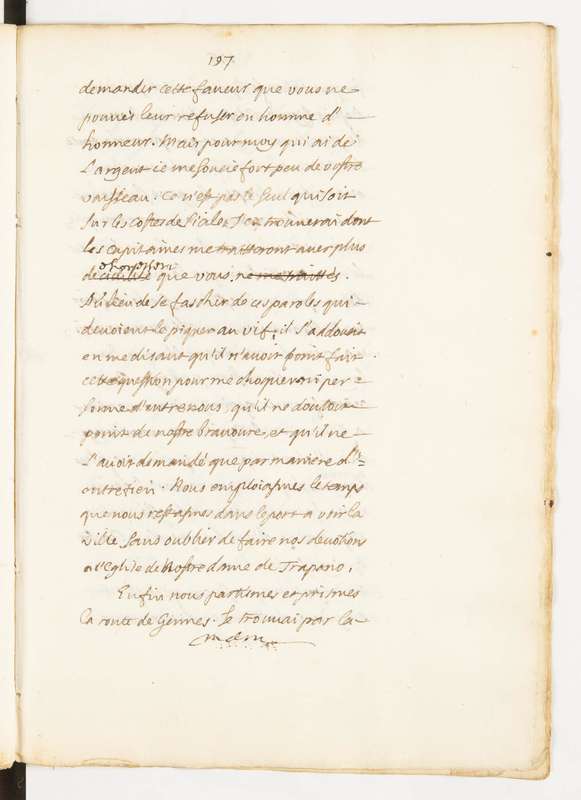 197
demander cette faveur que vous ne
pouvés leur refuser en homme d'
honneur. Mais pour moy qui ai de
l'argent ie me soucie fort peu de vostre
vaisseau. ce n'est pas le seul qui soit
sur les costes de Sicile, J'en trouverai dont
les capitaines me traitteront avec plus
de civilité que vous ne me traittés.
Au lieu de se fascher de ces paroles qui
devoient le piquer au vif, il s'addoucit
en me disant qu'il n'avoit point fait
cette question pour me choquer ni per=
sonne d'entre nous, qu'il ne doutoit
point de nostre bravoure, et qu'il ne
l'avoit demandé que par maniere d'
entretien. Nous emploiasmes le temps
que nous restasmes dans le port a voir la
ville sans oublier de faire nos devotions
a l'Eglise de Nostre dame de Trapano,
Enfin nous partismes et prismes
la route de Gennes. Je trouvai par la
mem